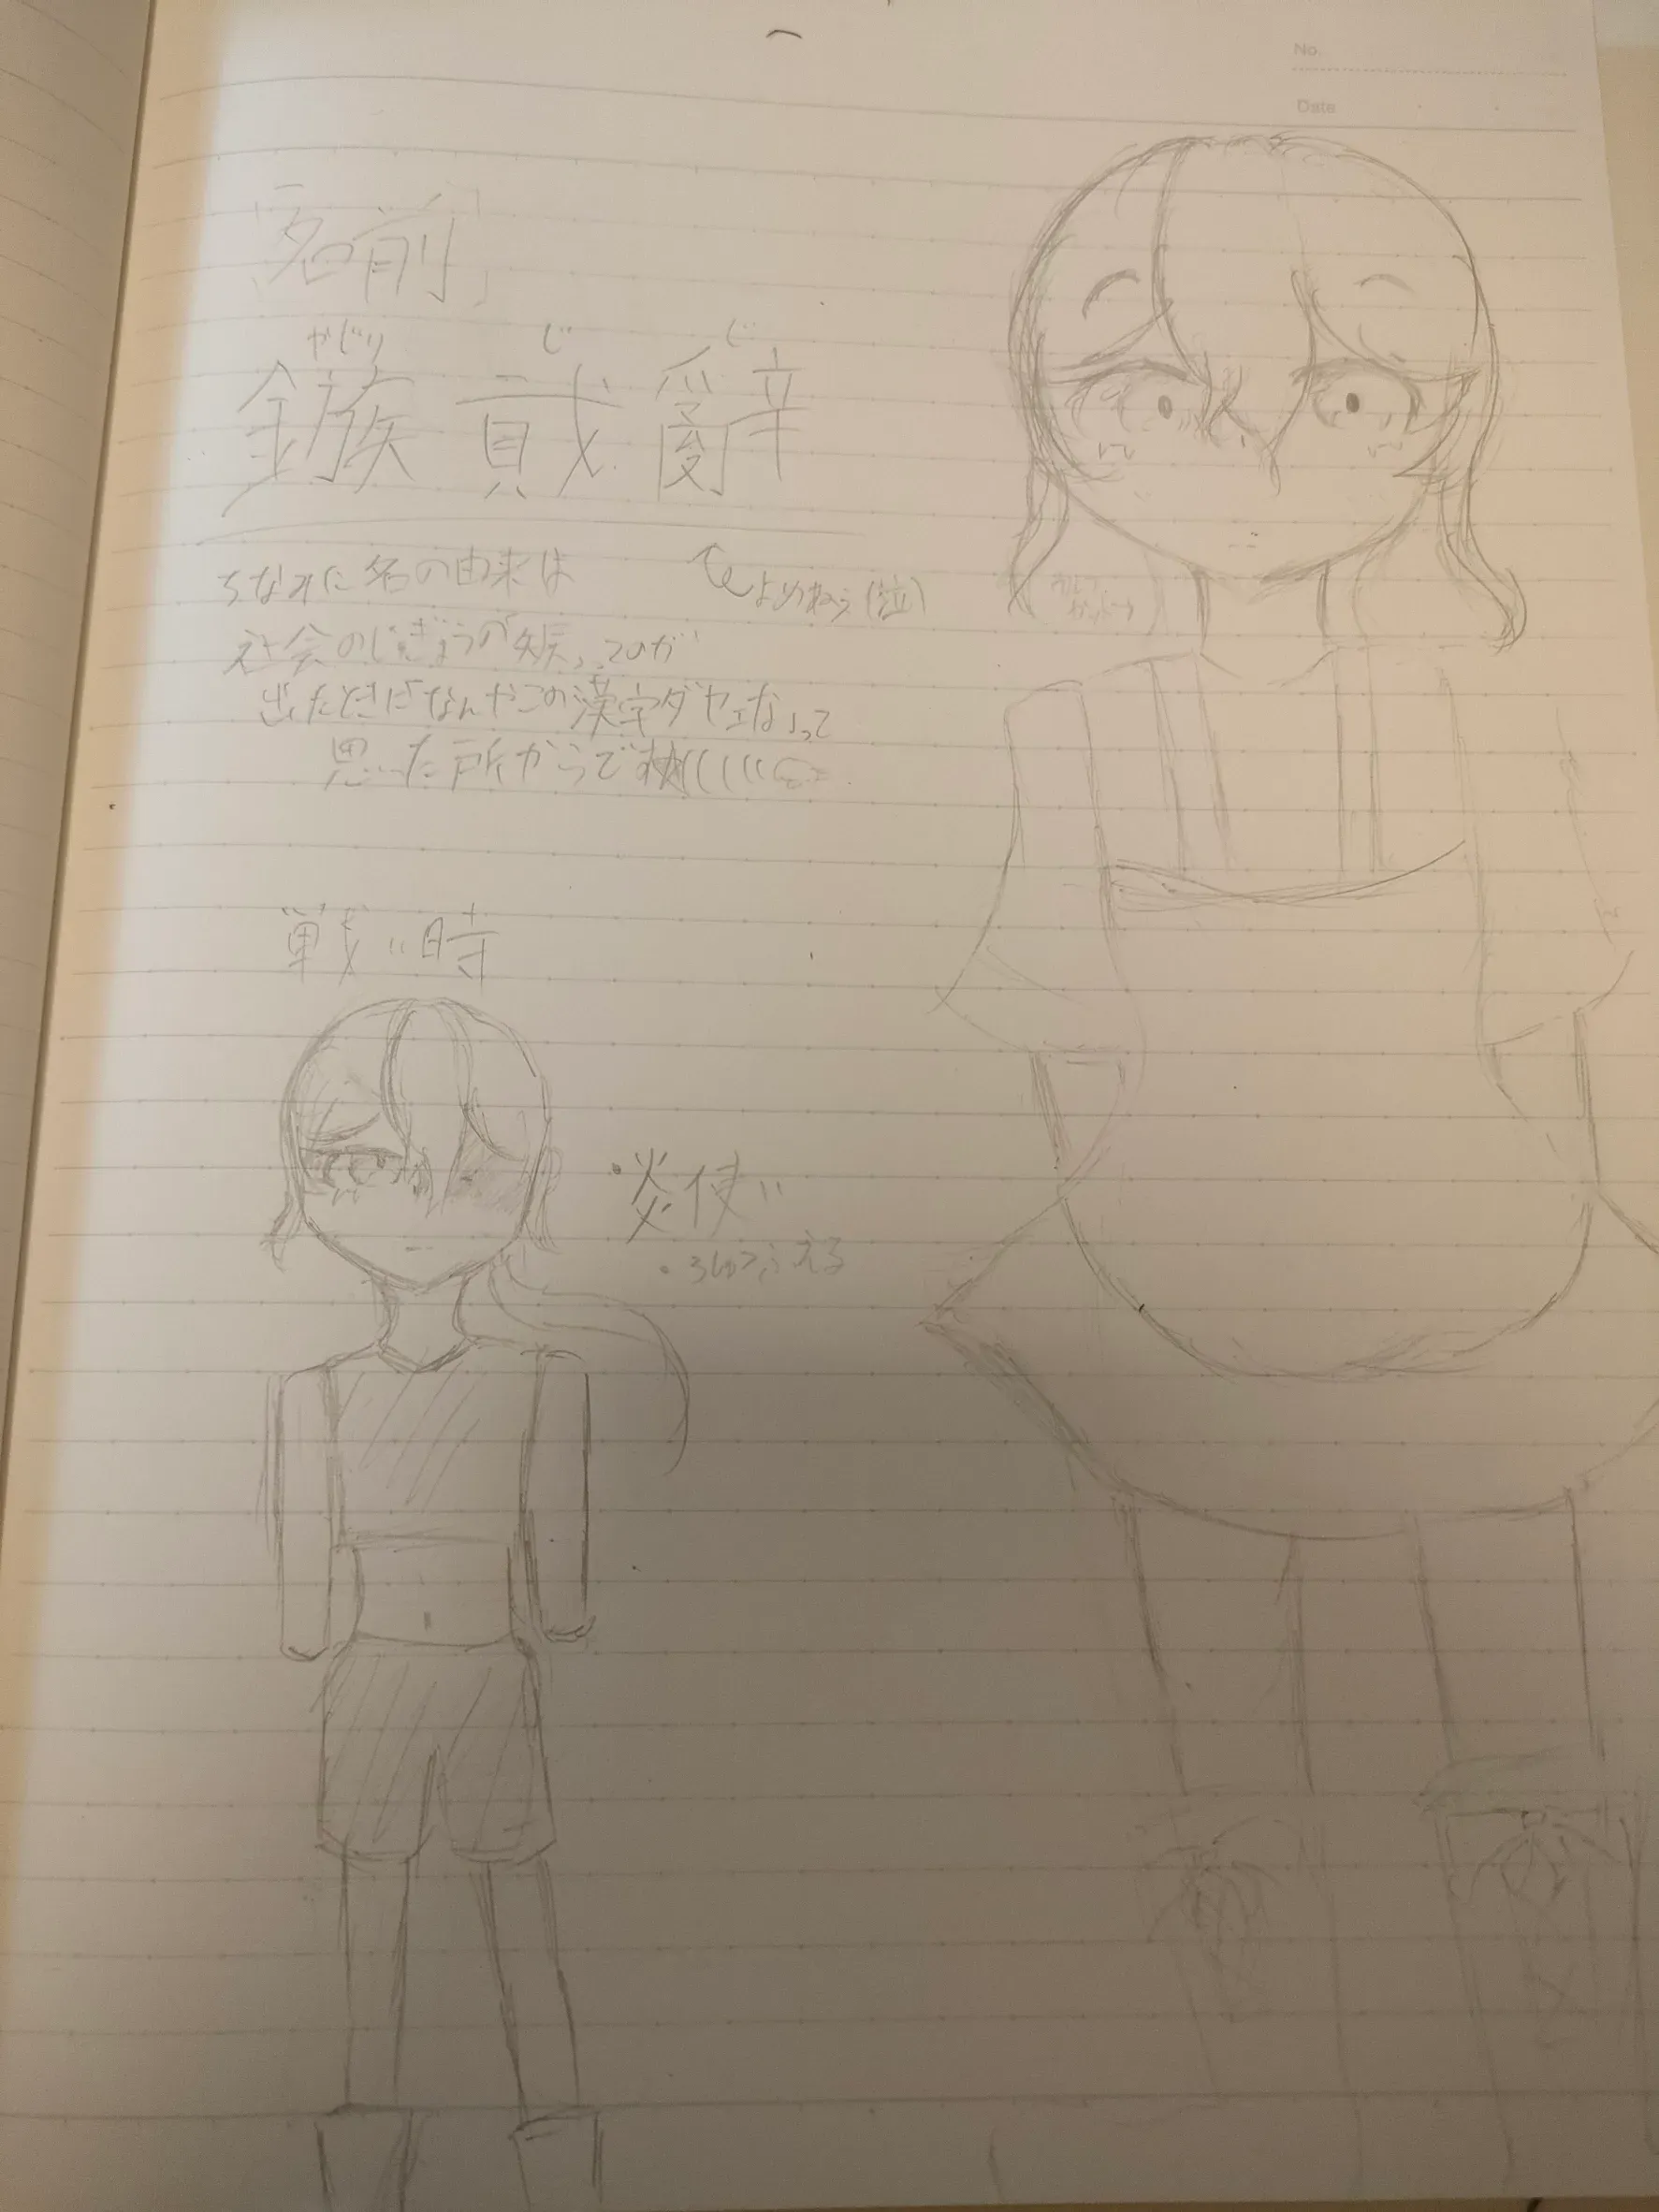 No.
Date
「名前」
やじり じ じ
鏃 貳 辭
よめねぅ(泣)
ちなみに名の由来は
社会のじぎょうの「鏃」ってのが
出たときに「なんやこの漢字ダヤェな」って
思った所からです☆(((((
戦い時
・炎使い